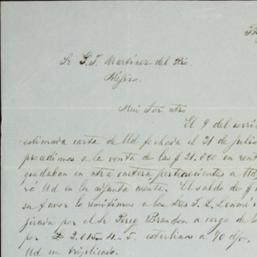 Sr G. J. Martinez del Rio
Mejico.
Mui Sor ntro
El 9 del
estimada carta de Ud fechada el 21 de julio
procedimos a la venta de las $ 21.000 en
quedaban en ntra cartera pertenecientes a
en la adjunta cuenta. El saldo de
su favor lo remitimos a los Sres
girada por el Sr Perez Brandon a cargo de
por £ 2.015.4.5. esterlinas a 90 d/v.
Ud en triplicado.